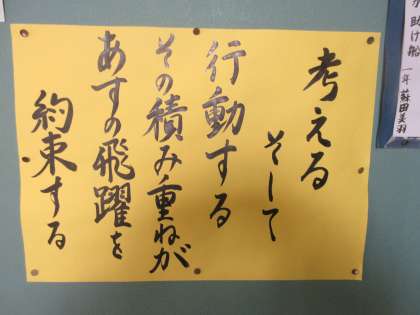 助け船
一年 蘇田美羽
考える
そして
行動する
その積み重ねが
あすの飛躍を
約束する